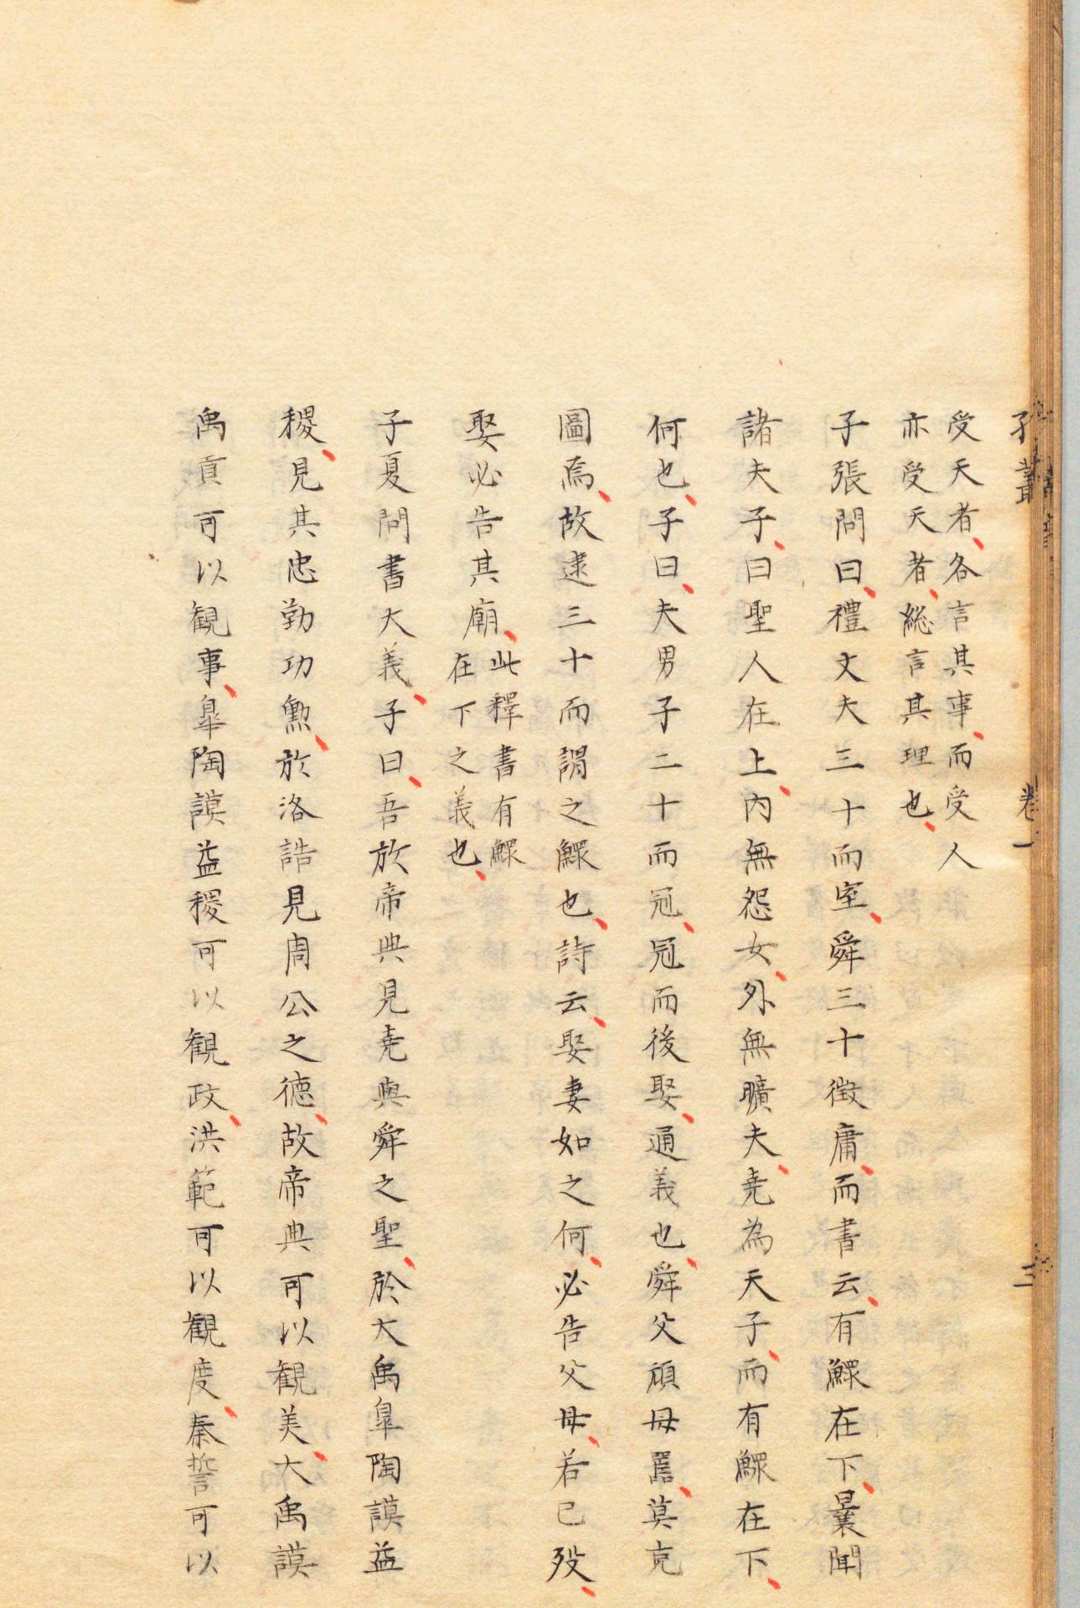 孔叢 卷一 三
受天者各言其事而受人
亦受天者総言其理也
子張問曰禮丈夫三十而室舜三十徴庸而書云有鰥在下曩聞
諸夫子曰聖人在上內無怨女外無曠夫堯為天子而有鰥在下
何也子曰夫男子二十而冠冠而後娶通義也舜父頑母嚚莫克
圖焉故逮三十而謂之鰥也詩云娶妻如之何必告父母若已歿
娶必告其廟此釋書有鰥
在下之義也
子夏問書大義子曰吾於帝典見堯與舜之聖於大禹皐陶謨益
稷見其忠勤功勲於洛誥見周公之德故帝典可以観美大禹謨
禹貢可以観事皐陶謨益稷可以観政洪範可以觀度秦誓可以